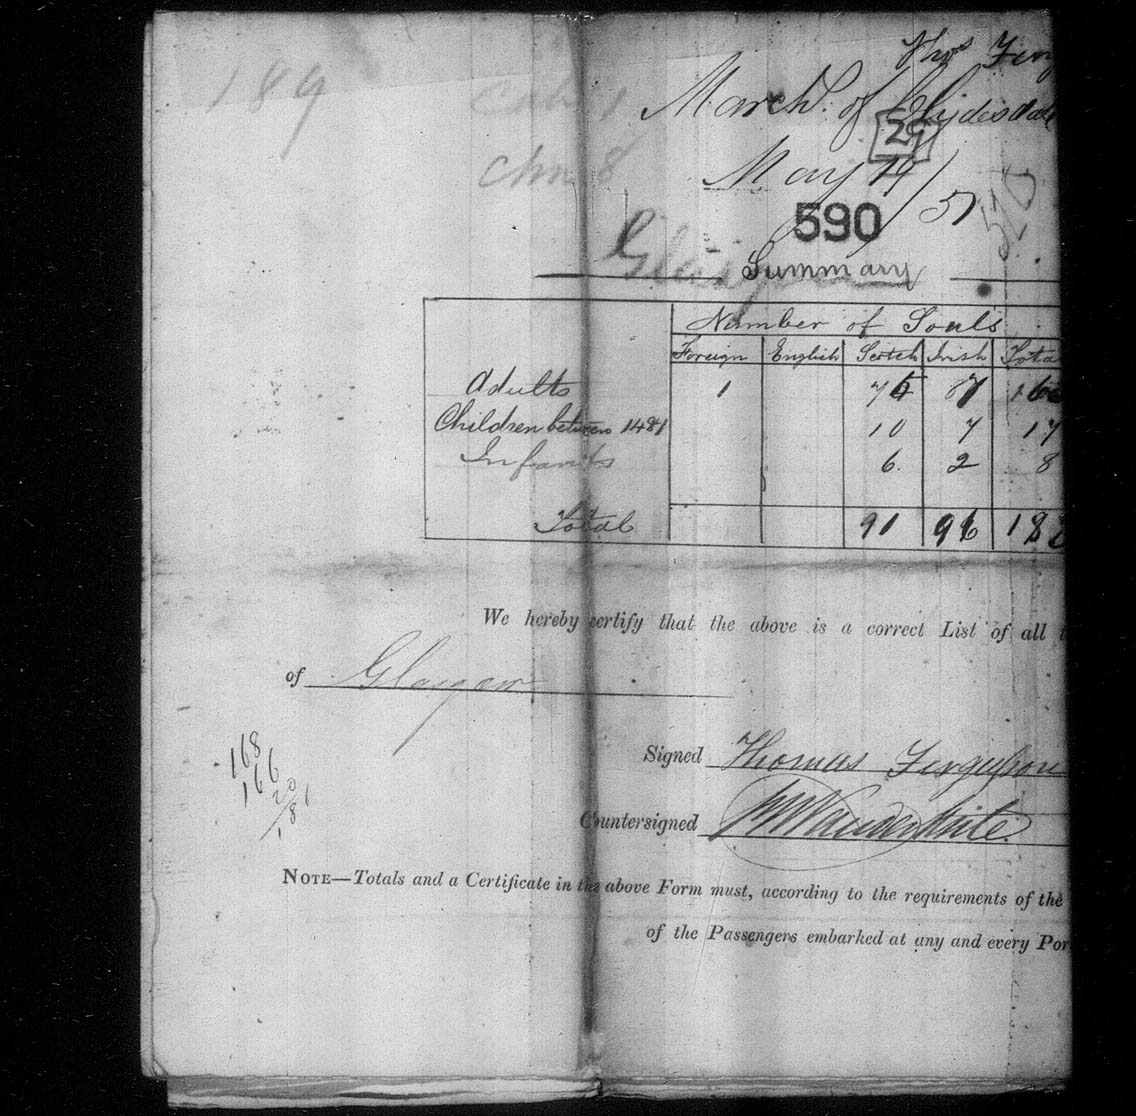 189
Cab 1
Thos Ferg
March. of Clydesdale
29
Chn 8
May 19/57
590
Glasgow
Summary
Number of Souls
Foreign English Scotch Irish Tota
Adults 1 75 87
Children between 14 & 1 10 7 17
Infants 6 2 8
Total 91 96
We hereby certify that the above is a correct List of all t
of Glasgow
168
166
20
181
Signed Thomas Ferguson
Countersigned
NOTE—Totals and a Certificate in the above Form must, according to the requirements of the
of the Passengers embarked at any and every Por